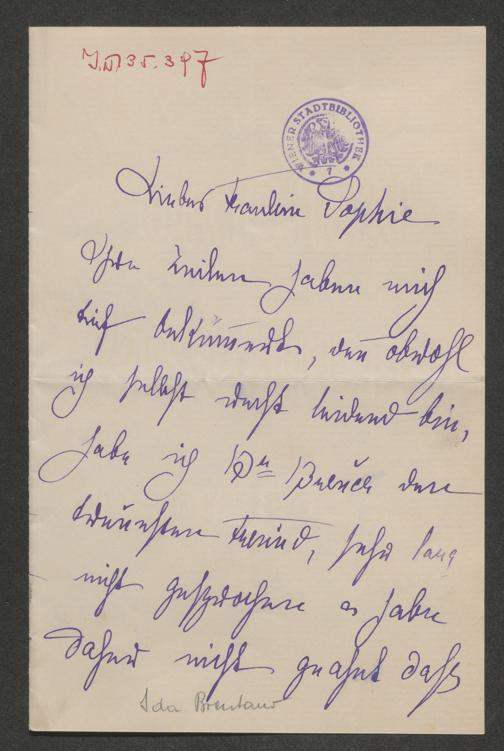 J.N. 35.397
WIENER STADTBIBLIOTHEK
7
Liebes Fräulein Sophie
Ihre Zeilen haben mich
tief bekümmert, den obwohl
ich selbst recht leidend bin,
habe ich Dr Breuer den
treuesten Freund, sehr lang
nicht gesprochen u habe
daher nicht geahnt daß
Ida Brentano